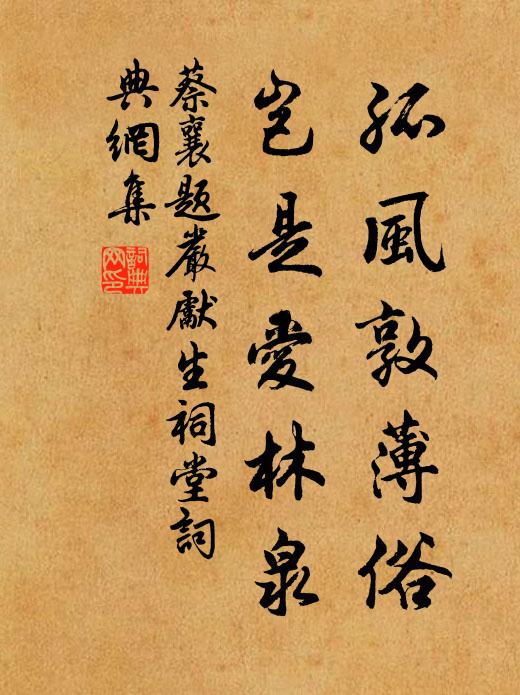 孤風敦薄俗
豈是愛林泉
蔡襄題嚴獻生祠堂詞
典網集
詞典
网印